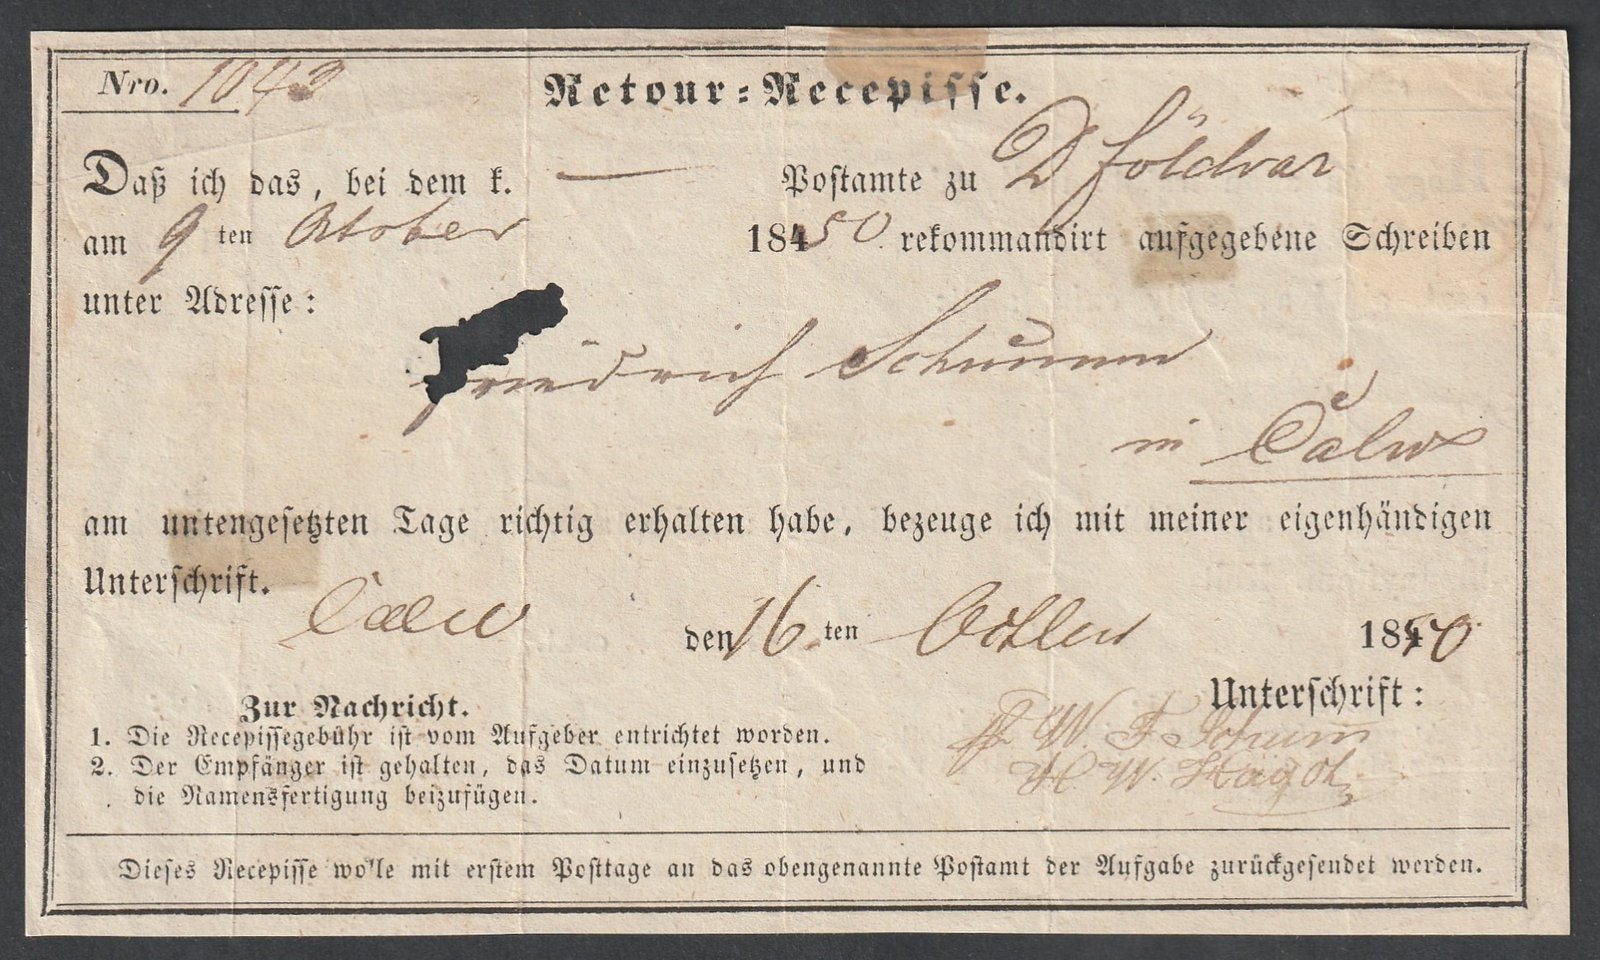 Nro. 1043
Retour-Recepisse.
Daß ich das, bei dem k. — Postamte zu D földvár
am 9 ten October 18450 rekommandirt aufgegebene Schreiben
unter Adresse:
Friedrich Schumm
in Calw
am untengesetzten Tage richtig erhalten habe, bezeuge ich mit meiner eigenhändigen
Unterschrift.
Calw den 16. ten Octber 1850
Unterschrift:
W. F. Schumm
Zur Nachricht.
1. Die Recepissegebühr ist vom Aufgeber entrichtet worden.
2. Der Empfänger ist gehalten, das Datum einzusetzen, und
die Namensfertigung beizufügen.
Dieses Recepisse wolle mit erstem Posttage an das obengenannte Postamt der Aufgabe zurückgesendet werden.